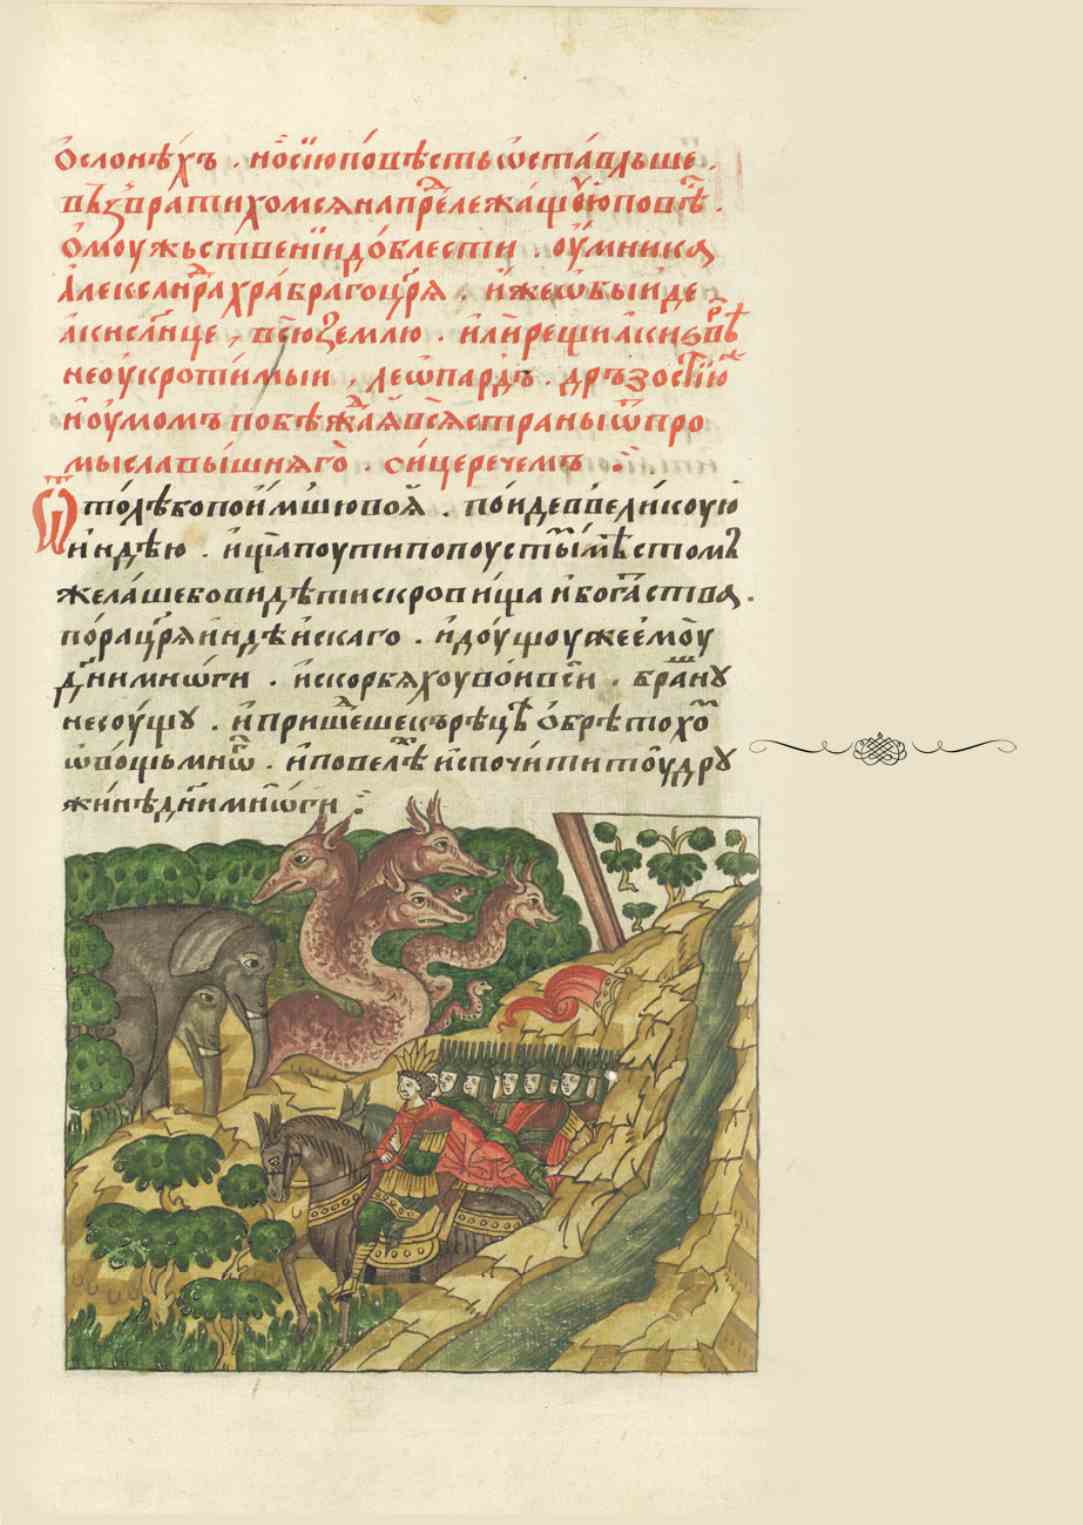 ѻслонѣхъ . но сїю повѣсть ѡставльше .
възвратихомся на пре лежащꙋю повѣ .
ѻмоужьственїи доблести . оумника
александра храбраго цр҃я . иже ѡбыиде
аки слн҃це , всю землю . или рещи аки
неоукротимыи , леѡпардъ . дръзостїю
и оумомъ побѣжая вся страны ѿ про
мысла вышняго . сице речемъ
Ѿтолѣ бо поимш ювоя . поиде в великоую
индѣю . ища поути по поустым мѣстомъ
желаше бо видѣти скровища и богатства .
пора цр҃я индѣискаго . идоущоу же емоу
дн҃и мнѡги . и скорбяхоу вои вси . брашнꙋ
не соущꙋ . и пришеше къ рѣцѣ ѻбрѣтохо
ѡвощь мнѡг . и повелѣ испочити тоу дрꙋ
жинѣ дн҃и мнѡги